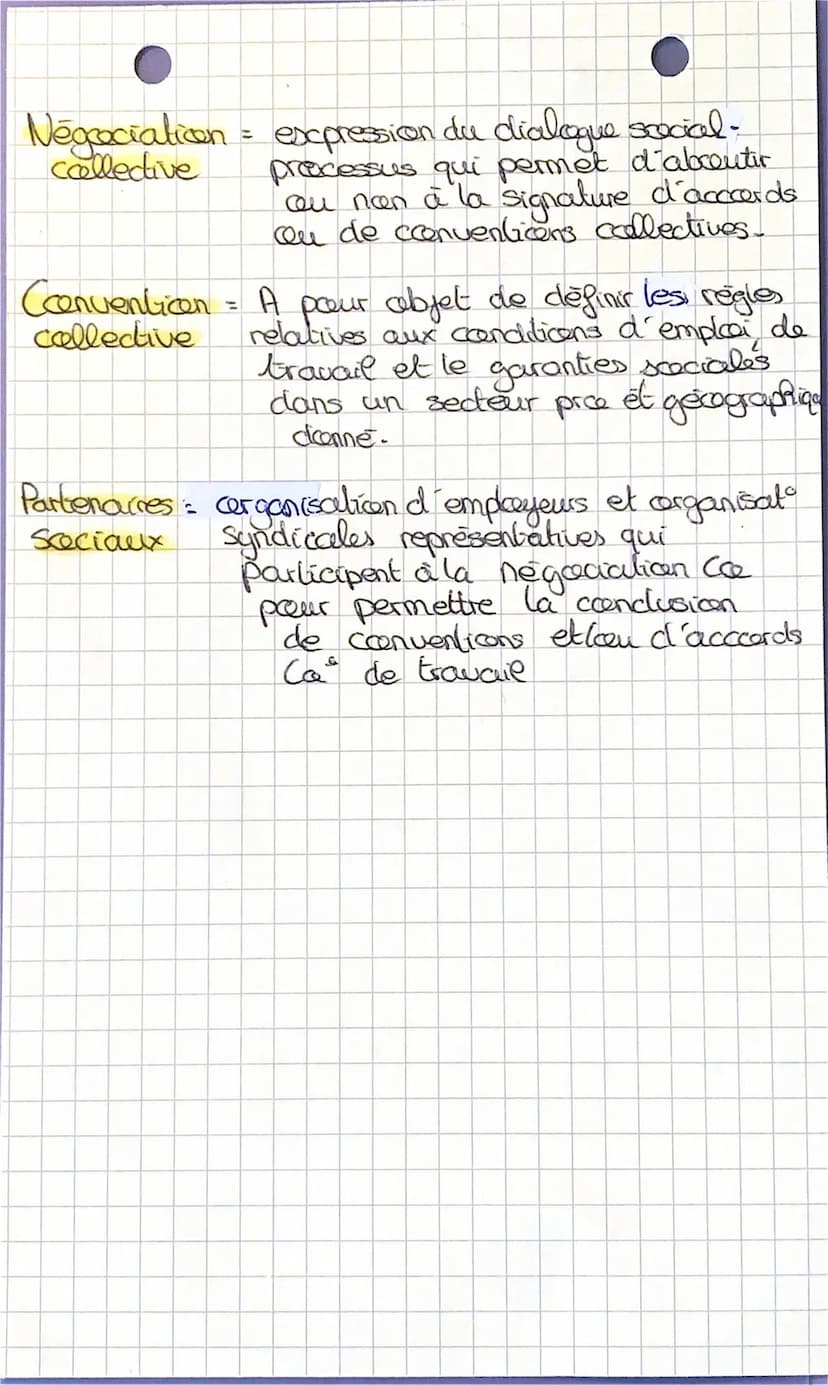 Négociation = expression du dialogue social.
collective processus qui permet d'aboutir
ou non à la signature d'accords
ou de conventions collectives.
Convention = A pour objet de définir les règles
collective relatives aux conditions d'emploi, de
travail et le garanties sociales
dans un secteur pro et géographiq
donné.
Partenaires = organisation d'employeurs et organisat°
sociaux syndicales représentatives qui
participent à la négociation Co
pour permettre la conclusion
de conventions et/ou d'accords
Co° de travail